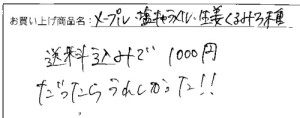 お買い上げ商品名：メープル・塩キャラメル・生姜くるみ3種
送料込みで 1000円
だったらうれしかった!!